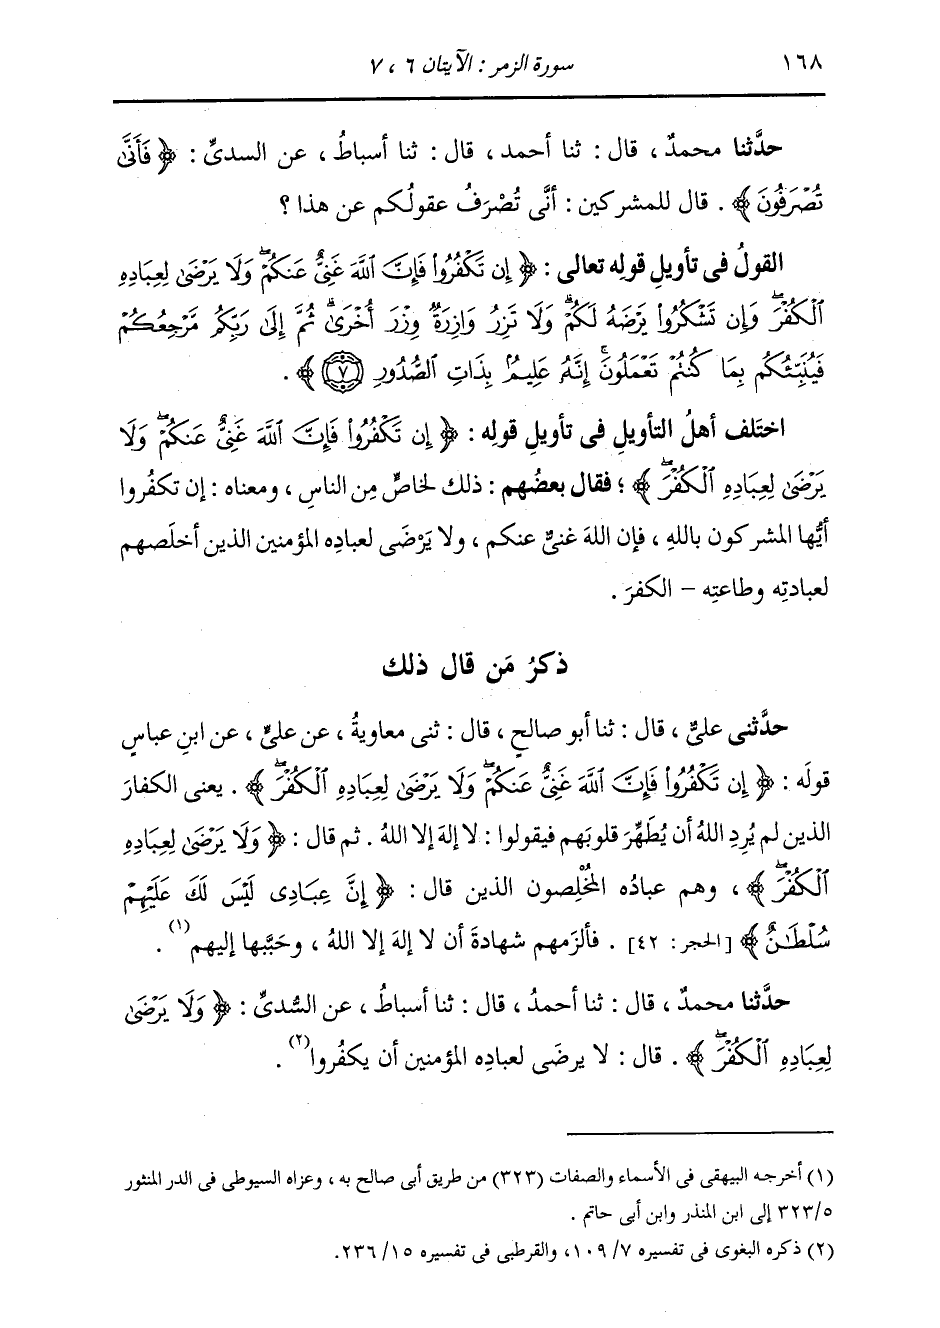 ١٦٨
سورة الزمر : الآيتان ٦ ، ٧
حدَّثنا محمدٌ ، قال : ثنا أحمد ، قال : ثنا أسباطُ ، عن السدىِّ : ﴿ فَأَنَّىٰ
تُصْرَفُونَ ﴾ . قال للمشركين : أنَّى تُصْرَفُ عقولُكم عن هذا ؟
القولُ فى تأويلِ قولِه تعالى : ﴿ إِن تَكْفُرُوا۟ فَإِنَّ ٱللَّهَ غَنِىٌّ عَنكُمْ ۖ وَلَا يَرْضَىٰ لِعِبَادِهِ
ٱلْكُفْرَ ۖ وَإِن تَشْكُرُوا۟ يَرْضَهُ لَكُمْ ۗ وَلَا تَزِرُ وَازِرَةٌ وِزْرَ أُخْرَىٰ ۗ ثُمَّ إِلَىٰ رَبِّكُم مَّرْجِعُكُمْ
فَيُنَبِّئُكُم بِمَا كُنتُمْ تَعْمَلُونَ ۚ إِنَّهُۥ عَلِيمٌۢ بِذَاتِ ٱلصُّدُورِ ٧ ﴾ .
اختَلف أهلُ التأويلِ فى تأويلِ قولِه : ﴿ إِن تَكْفُرُوا۟ فَإِنَّ ٱللَّهَ غَنِىٌّ عَنكُمْ ۖ وَلَا
يَرْضَىٰ لِعِبَادِهِ ٱلْكُفْرَ ۖ ﴾ ؛ فقال بعضُهم : ذلك لخاصٍّ مِن الناسِ ، ومعناه : إن تكفُروا
أيُّها المشركون باللهِ ، فإن اللهَ غنىٌّ عنكم ، ولا يَرْضَى لعبادِه المؤمنين الذين أخلَصهم
لعبادتِه وطاعتِه – الكفرَ .
ذكرُ مَن قال ذلك
حدَّثنى علىٌّ ، قال : ثنا أبو صالحٍ ، قال : ثنى معاويةُ ، عن علىٍّ ، عن ابنِ عباسٍ
قولَه : ﴿ إِن تَكْفُرُوا۟ فَإِنَّ ٱللَّهَ غَنِىٌّ عَنكُمْ ۖ وَلَا يَرْضَىٰ لِعِبَادِهِ ٱلْكُفْرَ ۖ ﴾ . يعنى الكفارَ
الذين لم يُرِدِ اللهُ أن يُطَهِّرَ قلوبَهم فيقولوا : لا إلهَ إلا اللهُ . ثم قال : ﴿ وَلَا يَرْضَىٰ لِعِبَادِهِ
ٱلْكُفْرَ ۖ ﴾ ، وهم عبادُه المُخْلِصون الذين قال : ﴿ إِنَّ عِبَادِى لَيْسَ لَكَ عَلَيْهِمْ
سُلْطَٰنٌ ﴾ [الحجر : ٤٢] . فألزَمهم شهادةَ أن لا إلهَ إلا اللهُ ، وحَبَّبها إليهم(١) .
حدَّثنا محمدٌ ، قال : ثنا أحمدُ ، قال : ثنا أسباطُ ، عن السُّدىِّ : ﴿ وَلَا يَرْضَىٰ
لِعِبَادِهِ ٱلْكُفْرَ ۖ ﴾ . قال : لا يرضَى لعبادِه المؤمنين أن يكفُروا(٢) .
(١) أخرجه البيهقى فى الأسماء والصفات (٣٢٣) من طريق أبى صالح به ، وعزاه السيوطى فى الدر المنثور
٣٢٣/٥ إلى ابن المنذر وابن أبى حاتم .
(٢) ذكره البغوى فى تفسيره ٧/ ١٠٩، والقرطبى فى تفسيره ١٥/ ٢٣٦.